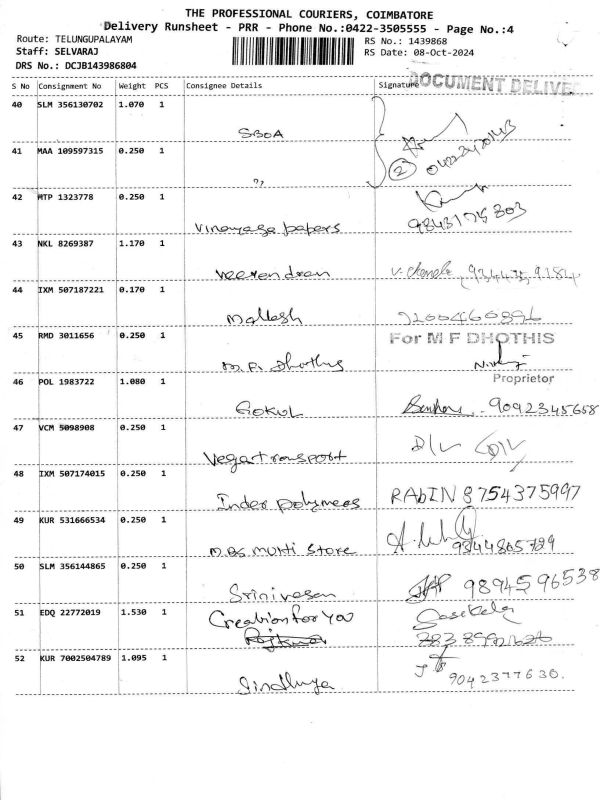 THE PROFESSIONAL COURIERS, COIMBATORE
Delivery Runsheet - PRR - Phone No.:0422-3505555 - Page No.:4
Route: TELUNGUPALAYAM
RS No.: 1439868
Staff: SELVARAJ
RS Date: 08-Oct-2024
DRS No.: DCJB143986804
DOCUMENT DELIVE
S No Consignment No Weight PCS Consignee Details Signature
40 SLM 356130702 1.070 1
SBOA
41 MAA 109597315 0.250 1
②
"
42 MTP 1323778 0.250 1
Vinayaga papers 9843175303
43 NKL 8269387 1.170 1
Veerendran
44 IXM 507187221 0.170 1
Mallesh
45 RMD 3011656 0.250 1 For M F DHOTHIS
M.F. Dhothis
Proprietor
46 POL 1983722 1.080 1
Gokul 9092345658
47 VCM 5098908 0.250 1
Vegatransport
48 IXM 507174015 0.250 1
Inder polymers RAbIN 8754375997
49 KUR 531666534 0.250 1
M.BS Multi Store 9344805799
50 SLM 356144865 0.250 1
Srinivasan 9894596538
51 EDQ 22772019 1.530 1 Creation for you Sasikala
52 KUR 7002504789 1.095 1
Sindhuya 9042377630.